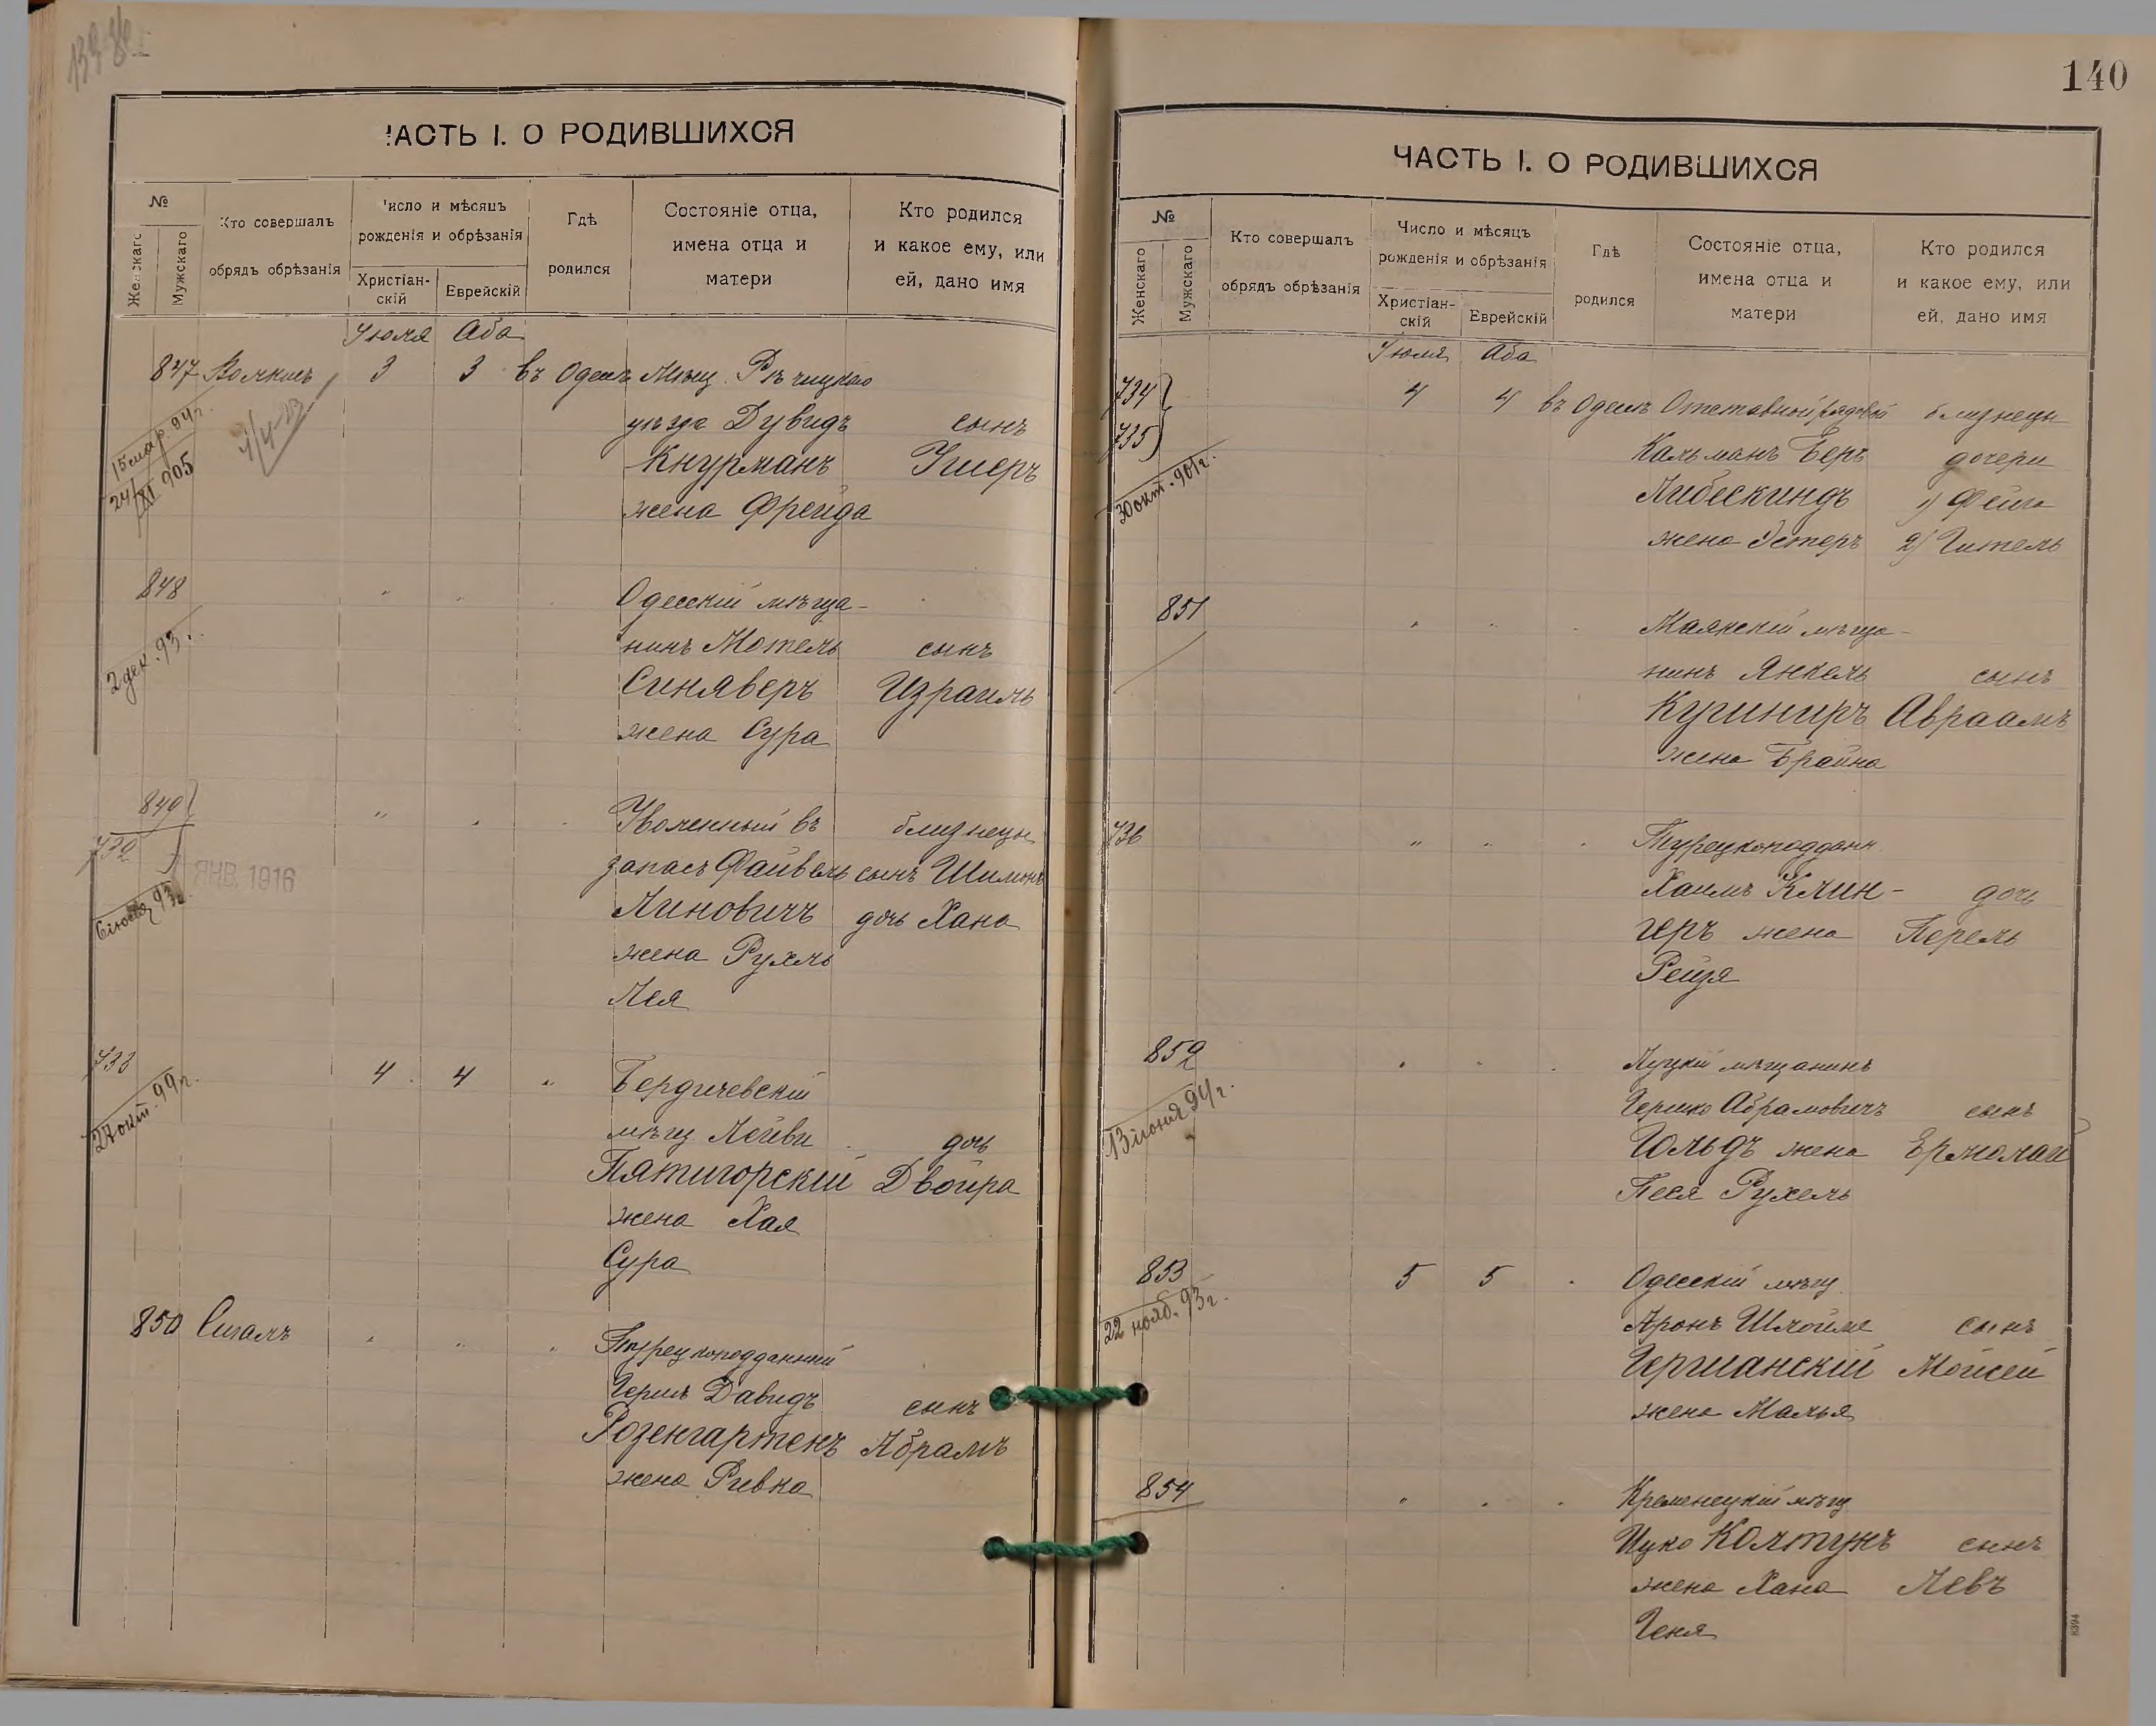 139 об
ЧАСТЬ I. О РОДИВШИХСЯ
№
Женскаго
Мужскаго
Кто совершалъ
обрядъ обрѣзанія
Число и мѣсяцъ
рожденія и обрѣзанія
Христіан-
скій
Еврейскій
Гдѣ
родился
Состояніе отца,
имена отца и
матери
Кто родился
и какое ему, или
ей, дано имя
Іюля Аба
847 3 3 въ Одессѣ Мѣщ. Рѣчицкаго
уѣзда Дувидъ сынъ
Кнурманъ Ушеръ
жена Фрейда
15 мар. 94 г.
24/XI 905
848 " " Одесскій мѣща-
нинъ Мотель сынъ
Синяверъ Израиль
жена Сура
2 дек. 93 г.
849 " " Уволенный въ близнецы
732 запасъ Файвель сынъ Шимонъ
Линовичъ дочь Хана
жена Рухль
Лея
ЯНВ. 1916
733 4 4 " Бердичевскій
мѣщ. Лейви дочь
Пятигорскій Двойра
жена Хая
Сура
27 окт. 99 г.
850 Сигалъ " " " Турецкоподданный
Герш Давидъ сынъ
Розенгартенъ Абрамъ
жена Ривка
140
ЧАСТЬ I. О РОДИВШИХСЯ
№
Женскаго
Мужскаго
Кто совершалъ
обрядъ обрѣзанія
Число и мѣсяцъ
рожденія и обрѣзанія
Христіан-
скій
Еврейскій
Гдѣ
родился
Состояніе отца,
имена отца и
матери
Кто родился
и какое ему, или
ей, дано имя
Іюля Аба
734 4 4 въ Одессѣ Отставной рядовой близнецы
735 Кальманъ Беръ дочери
Либескиндъ 1) Фейга
жена Эстеръ 2) Гитель
30 окт. 901 г.
851 " " " Маякскій мѣща-
нинъ Янкель сынъ
Кугиниръ Авраамъ
жена Брайна
736 " " " Турецкоподданн.
Хаимъ Клин- дочь
геръ жена Перель
Рейзя
852 " " " Луцкій мѣщанинъ
Гершко Абрамовичъ сынъ
Гольдъ жена Ермолай
Песя Рухель
13 іюня 94 г.
853 5 5 " Одесскій мѣщ.
Аронъ Шлойме сынъ
Гершанскій Мойсей
жена Малья
22 нояб. 93 г.
854 " " " Кременецкій мѣщ.
Ицко Колтунъ сынъ
жена Хана Левъ
Геня